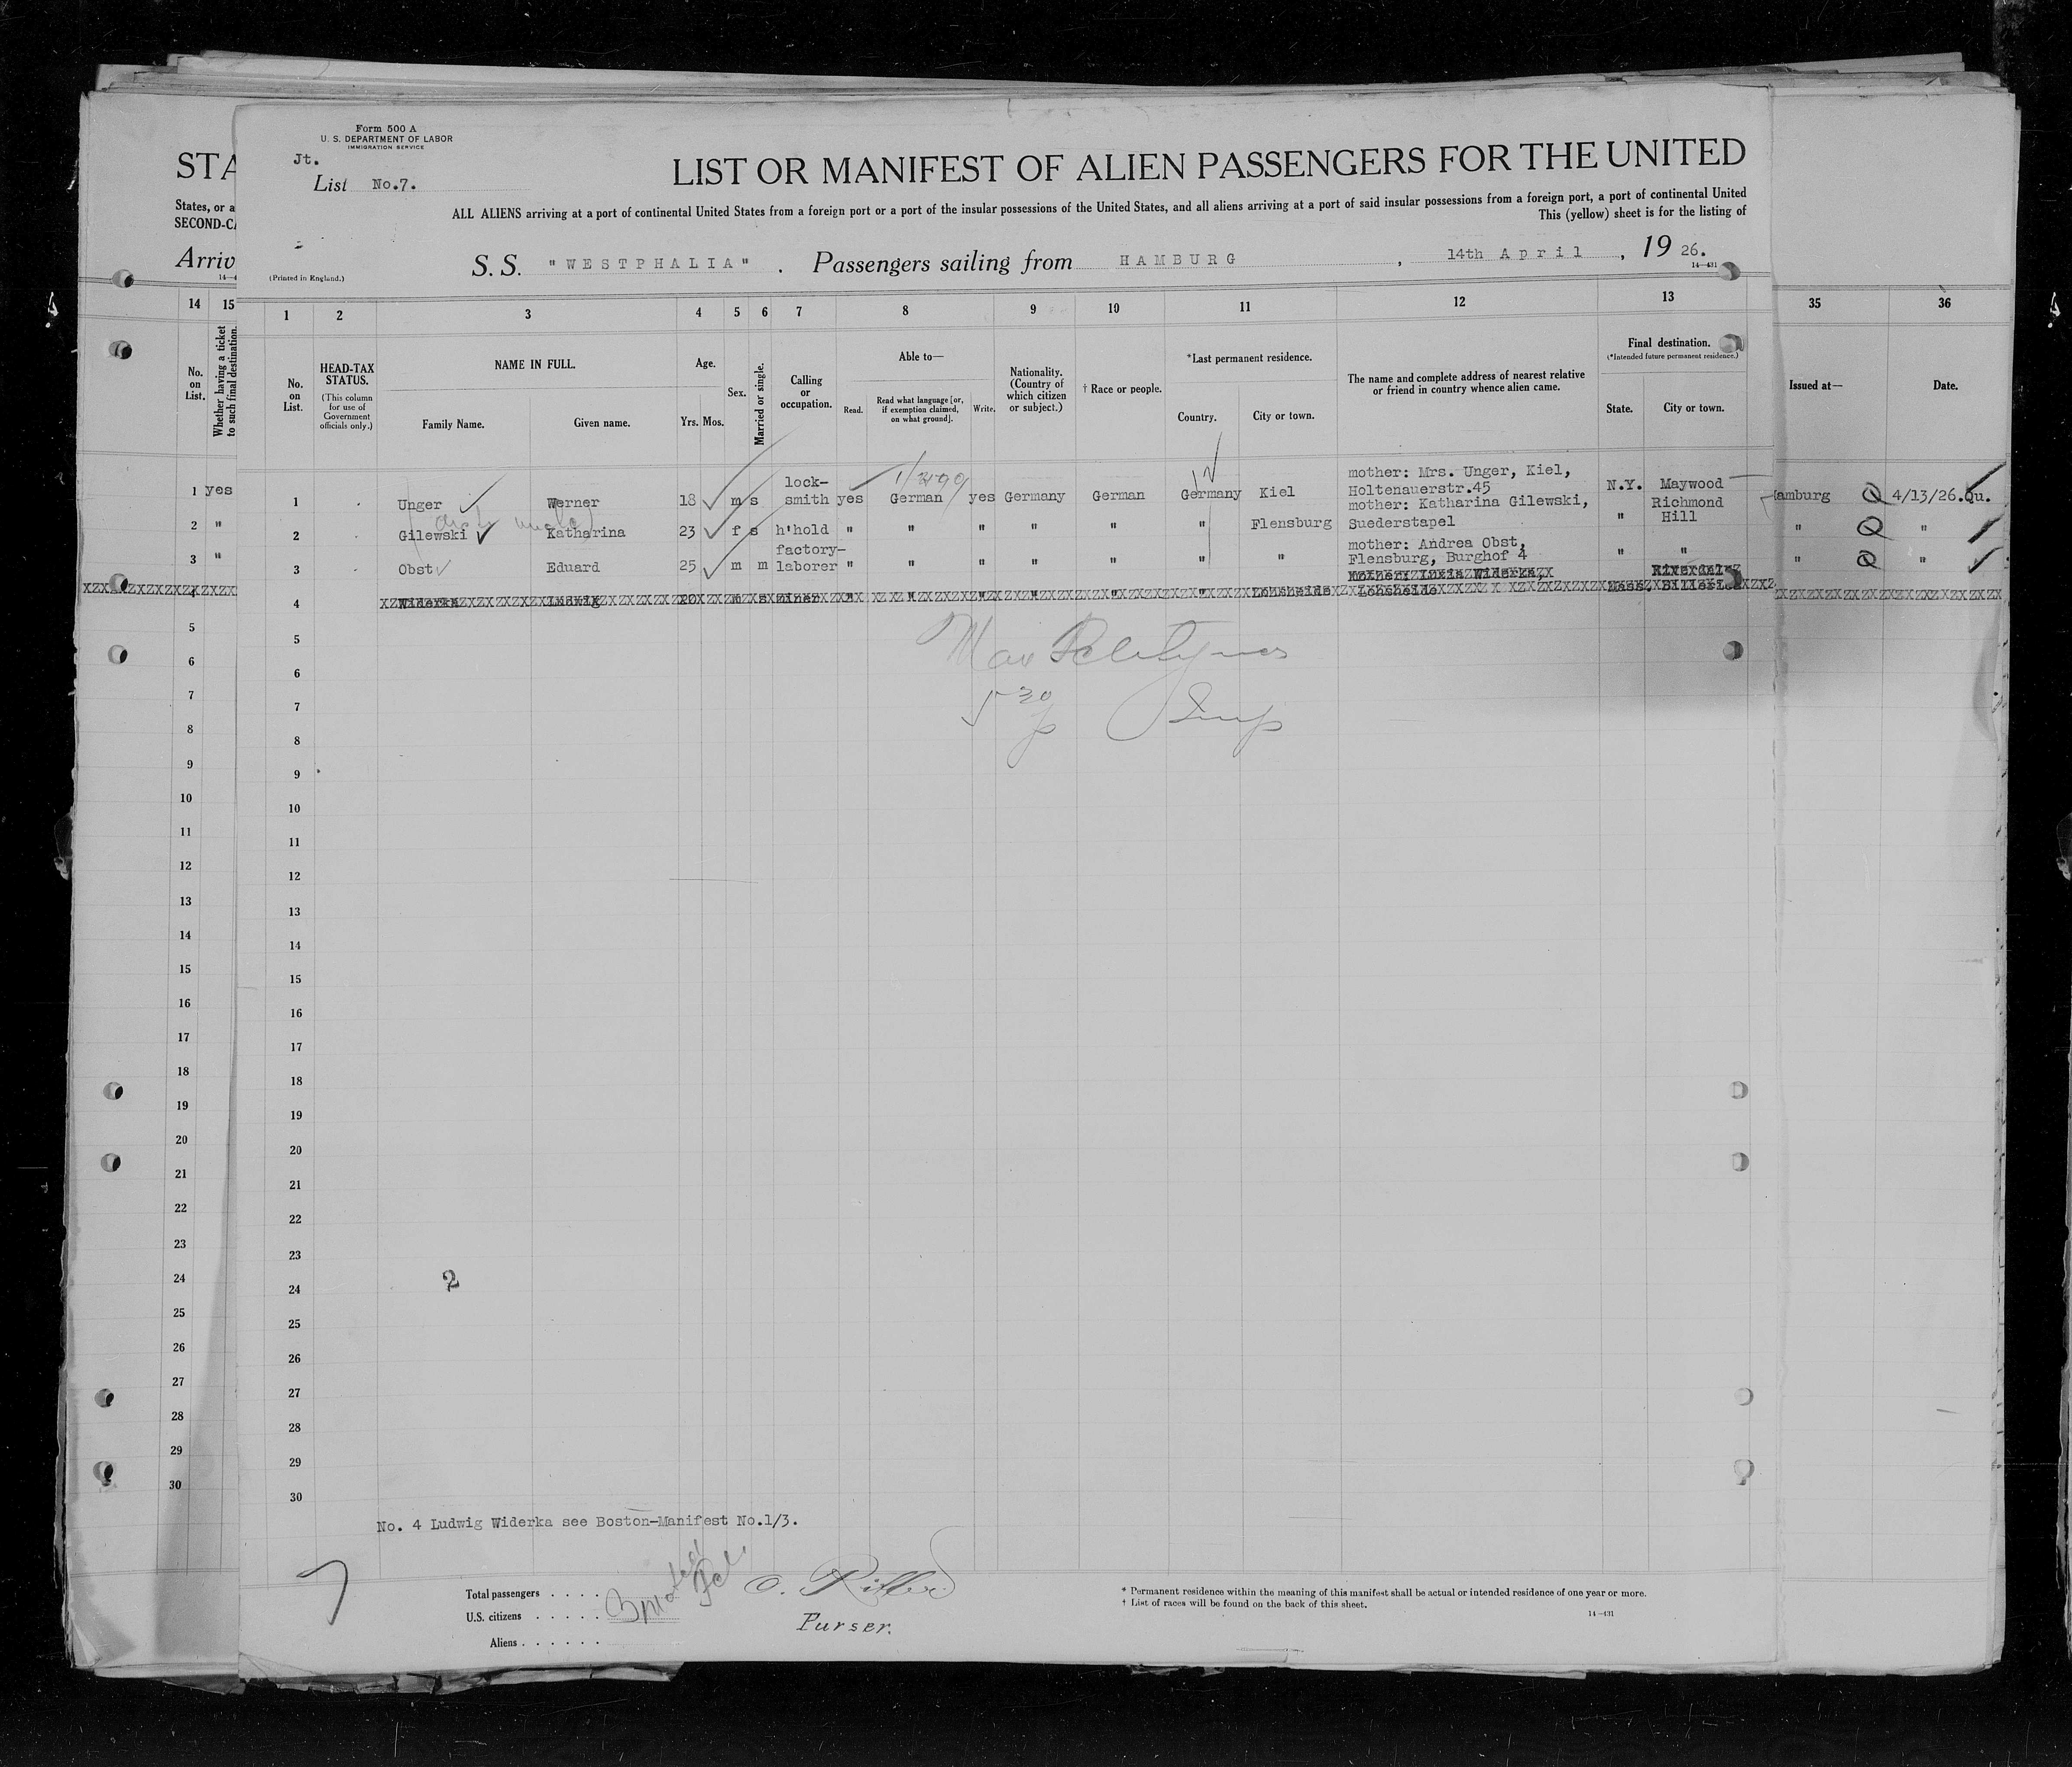 Form 500 A
U. S. DEPARTMENT OF LABOR
IMMIGRATION SERVICE
Jt.
List No.7.
STA
LIST OR MANIFEST OF ALIEN PASSENGERS FOR THE UNITED
States, or a
SECOND-CA
ALL ALIENS arriving at a port of continental United States from a foreign port or a port of the insular possessions of the United States, and all aliens arriving at a port of said insular possessions from a foreign port, a port of continental United
This (yellow) sheet is for the listing of
Arriv
14—4
(Printed in England.)
S. S. "WESTPHALIA" . Passengers sailing from HAMBURG , 14th April , 19 26.
14—431
14 15 1 2 3 4 5 6 7 8 9 10 11 12 13 35 36
No. on List.
Whether having a ticket to such final destination.
No. on List.
HEAD-TAX STATUS.
(This column for use of Government officials only.)
NAME IN FULL.
Family Name. Given name.
Age.
Yrs. Mos.
Sex.
Married or single.
Calling or occupation.
Able to—
Read. Read what language [or, if exemption claimed, on what ground]. Write.
Nationality. (Country of which citizen or subject.)
† Race or people.
*Last permanent residence.
Country. City or town.
The name and complete address of nearest relative or friend in country whence alien came.
Final destination.
(*Intended future permanent residence.)
State. City or town.
Issued at— Date.
1 yes 1 Unger Werner 18 m s lock-smith yes German yes Germany German Germany Kiel mother: Mrs. Unger, Kiel, Holtenauerstr.45 N.Y. Maywood Hamburg Q 4/13/26.Qu.
2 " 2 Gilewski Katharina 23 f s h'hold " " " " " " Flensburg mother: Katharina Gilewski, Suederstapel " Richmond Hill " Q "
3 " 3 Obst Eduard 25 m m factory-laborer " " " " " " " mother: Andrea Obst, Flensburg, Burghof 4 " " " Q "
4 4 Widerka Ludwig 20 m s miner " " " " " " Lohsheide Lohsheide Mass. Billerica
5 5
6 6
7 7
8 8
9 9
10 10
11 11
12 12
13 13
14 14
15 15
16 16
17 17
18 18
19 19
20 20
21 21
22 22
23 23
24 24
25 25
26 26
27 27
28 28
29 29
30 30
2
No. 4 Ludwig Widerka see Boston-Manifest No.1/3.
Total passengers . . . .
U.S. citizens . . . . . .
Aliens . . . . . .
Purser.
* Permanent residence within the meaning of this manifest shall be actual or intended residence of one year or more.
† List of races will be found on the back of this sheet.
14—431